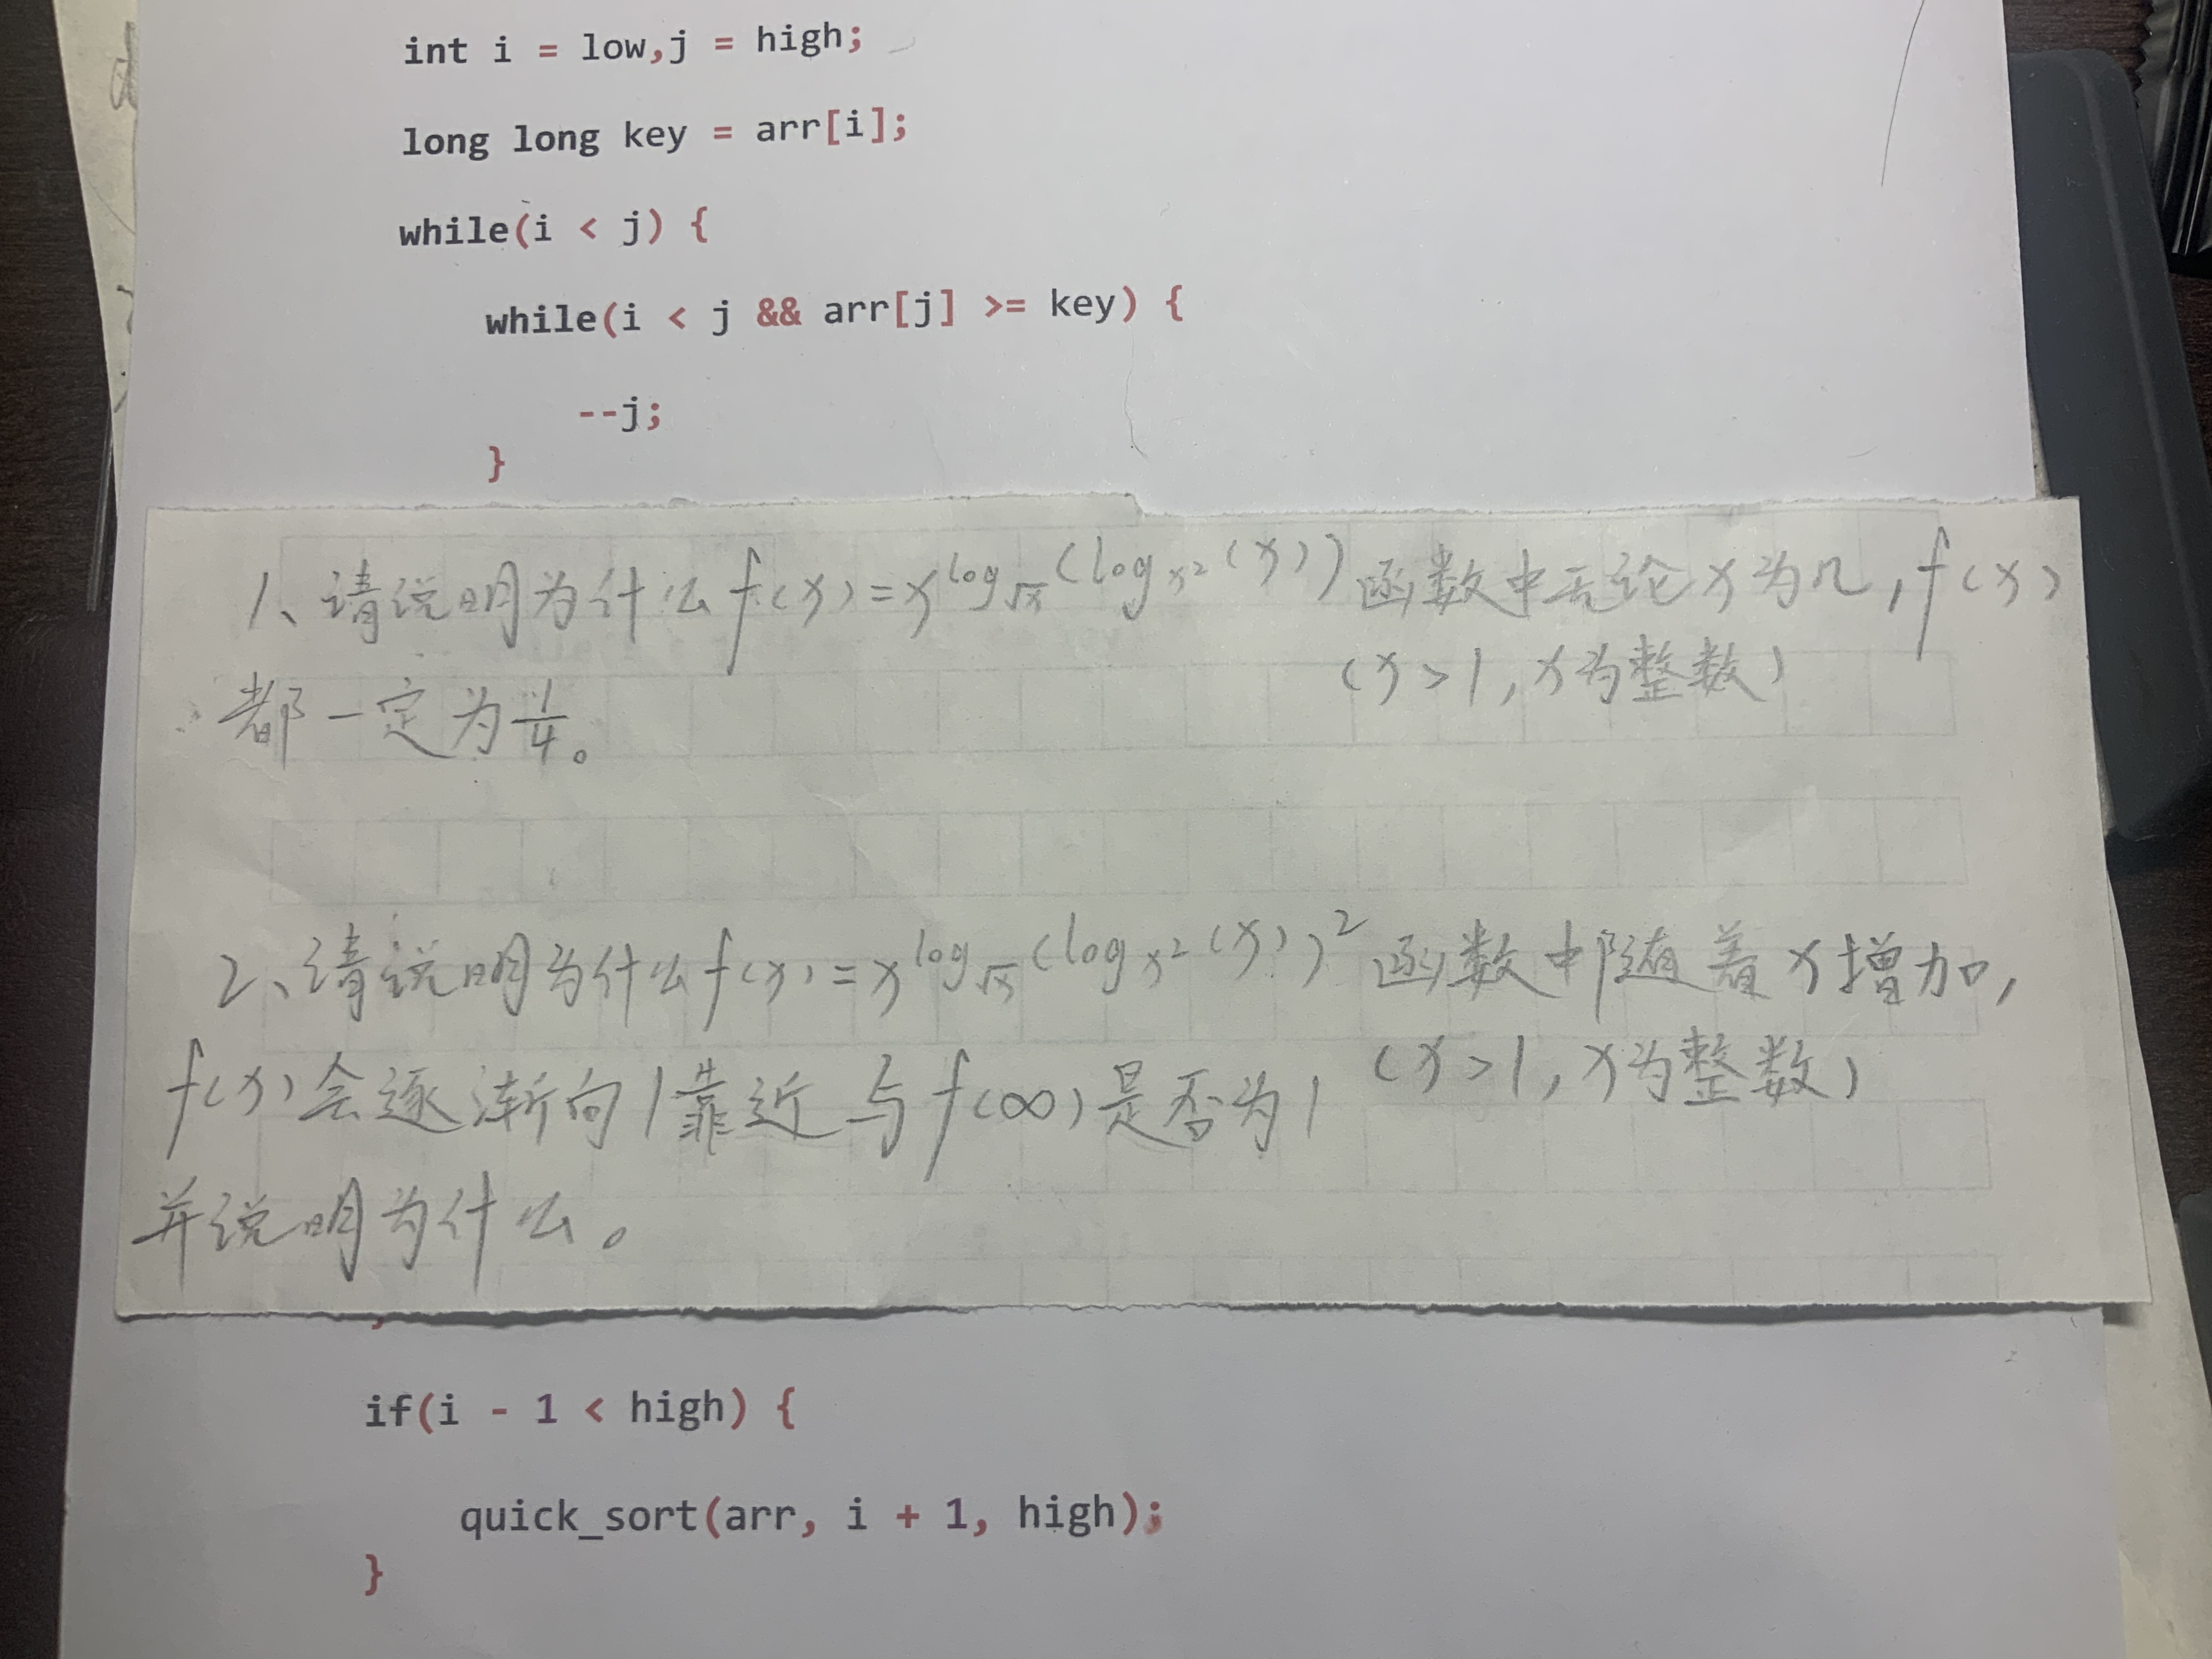 int i = low,j = high;
long long key = arr[i];
while(i < j) {
while(i < j && arr[j] >= key) {
--j;
}
1、请说明为什么f(x)=x^log_√x(log_x²(x))函数中无论x为几,f(x)
(x>1,x为整数)
都一定为1/4。
2、请说明为什么f(x)=x^log_√x(log_x²(x))²函数中随着x增加,
f(x)会逐渐向1靠近与f(∞)是否为1 (x>1,x为整数)
并说明为什么。
if(i - 1 < high) {
quick_sort(arr, i + 1, high);
}